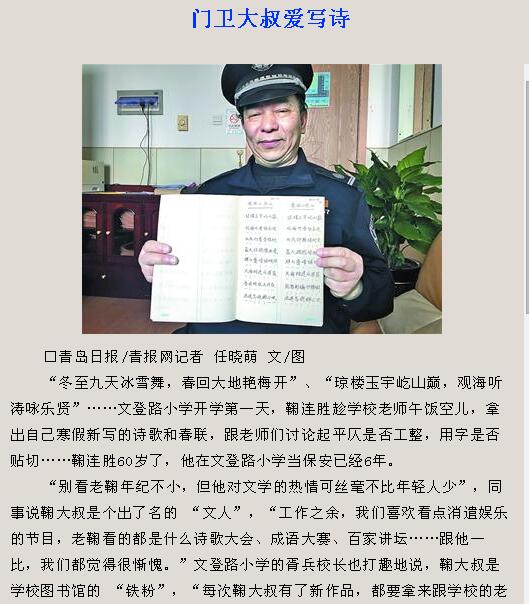 门卫大叔爱写诗
□青岛日报/青报网记者 任晓萌 文/图
“冬至九天冰雪舞，春回大地艳梅开”、“琼楼玉宇屹山巅，观海听
涛咏乐贤”……文登路小学开学第一天，鞠连胜趁学校老师午饭空儿，拿
出自己寒假新写的诗歌和春联，跟老师们讨论起平仄是否工整，用字是否
贴切……鞠连胜60岁了，他在文登路小学当保安已经6年。
“别看老鞠年纪不小，但他对文学的热情可丝毫不比年轻人少”，同
事说鞠大叔是个出了名的 “文人”，“工作之余，我们喜欢看点消遣娱乐
的节目，老鞠看的都是什么诗歌大会、成语大寨、百家讲坛……跟他一
比，我们都觉得很惭愧。”文登路小学的胥兵校长也打趣地说，鞠大叔是
学校图书馆的 “铁粉”，“每次鞠大叔有了新作品，都要拿来跟学校的老